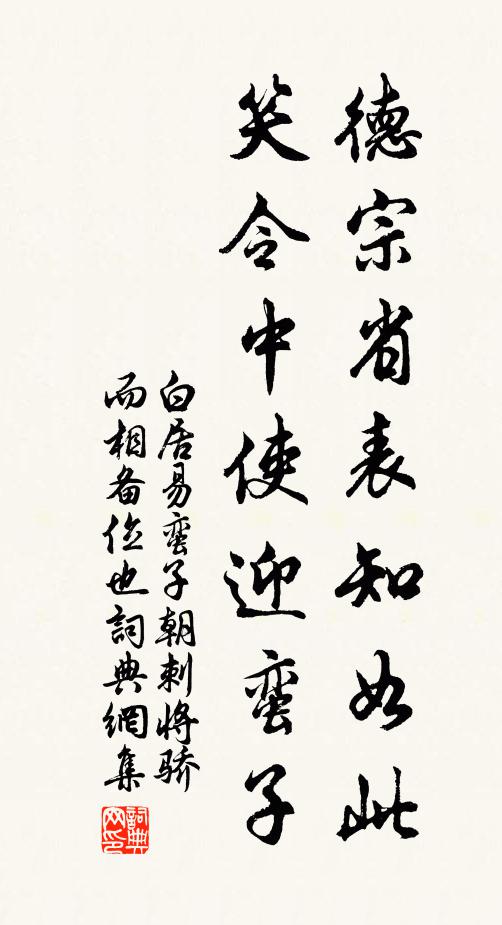 德宗省表知如此
笑令中使迎蛮子
白居易蛮子朝刺将骄
而相备位也詞典網集
詞典網印